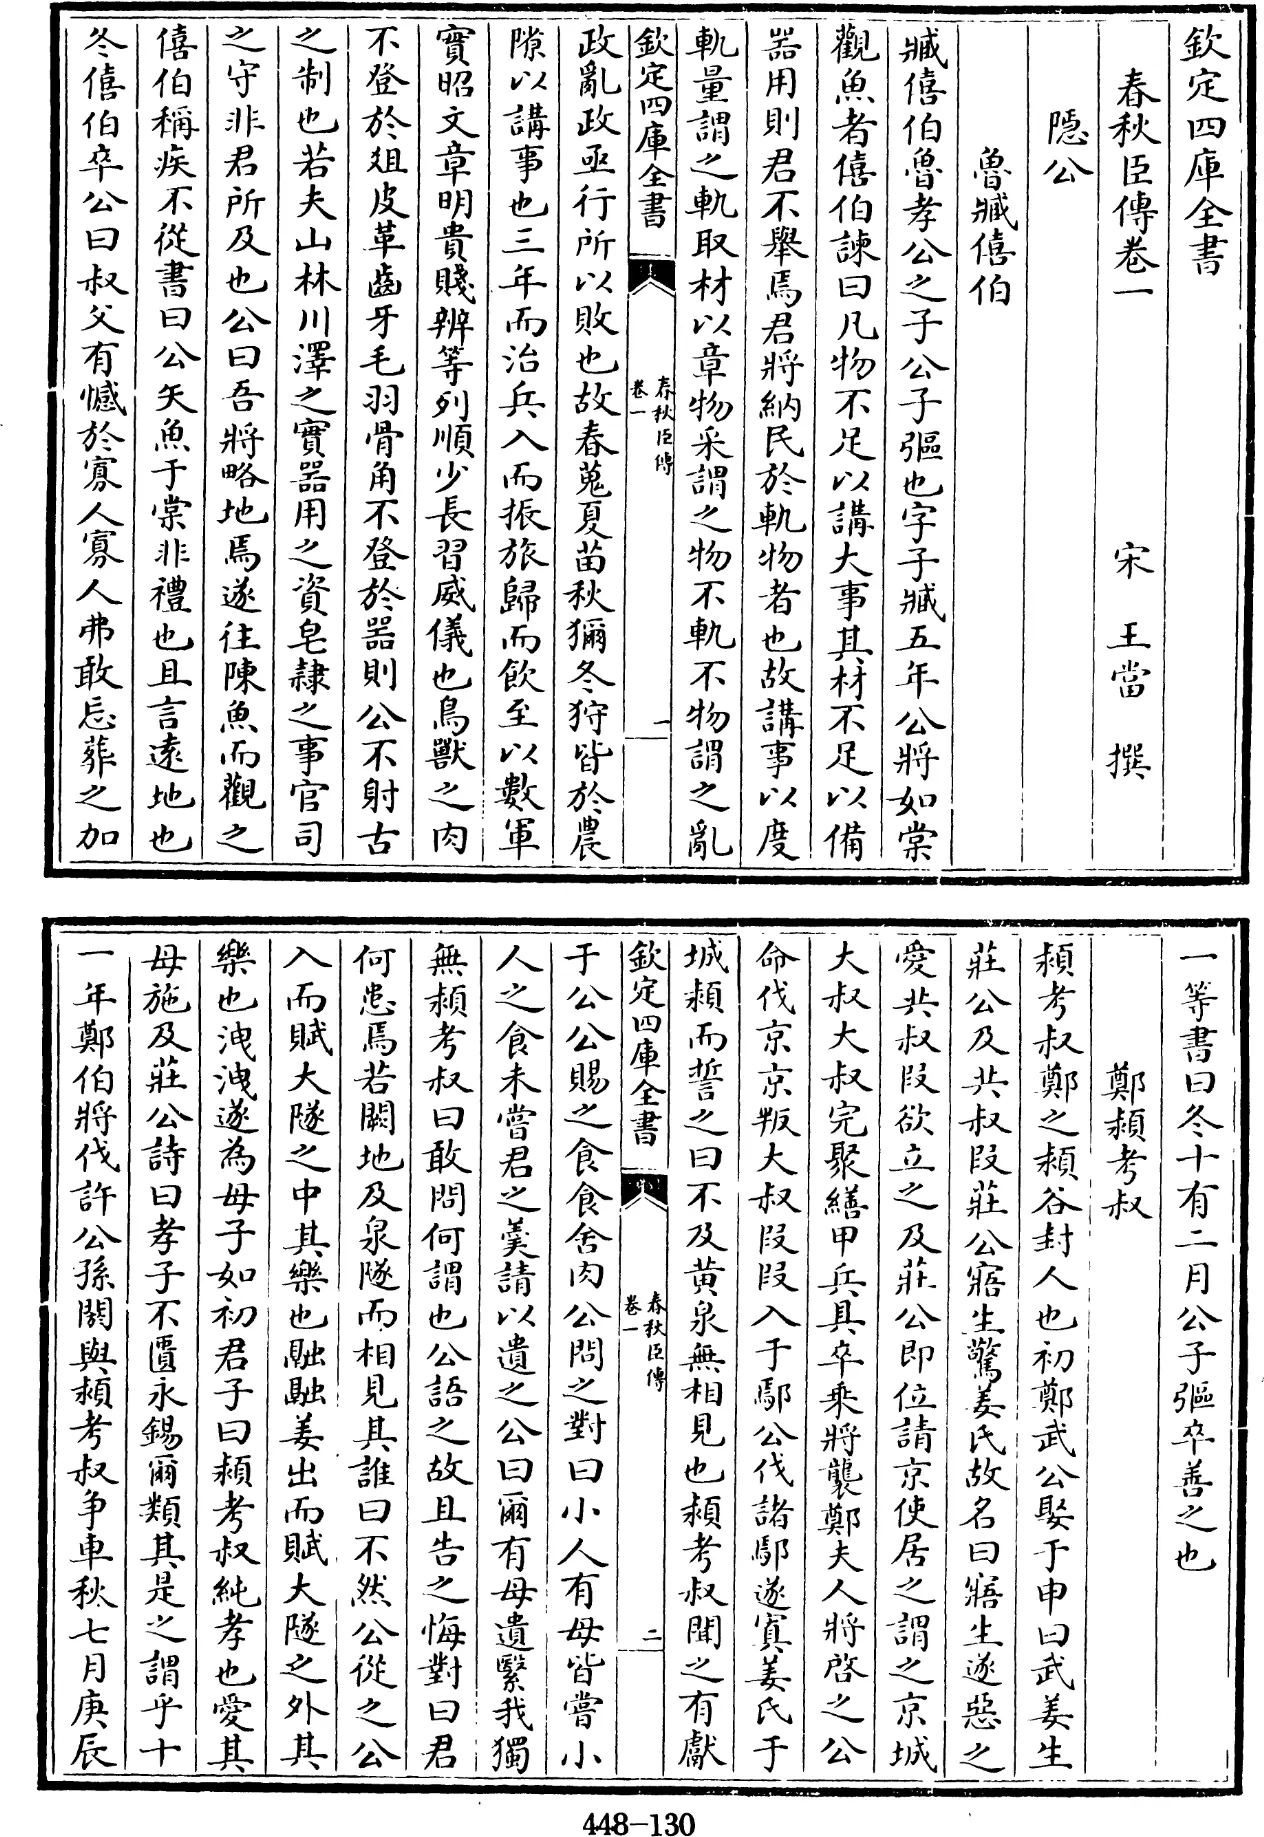 欽定四庫全書
春秋臣傳卷一　宋　王當　撰
隱公
魯臧僖伯
臧僖伯魯孝公之子公子彄也字子臧五年公將如棠
觀魚者僖伯諫曰凡物不足以講大事其材不足以備
器用則君不舉焉君將納民於軌物者也故講事以度
軌量謂之軌取材以章物采謂之物不軌不物謂之亂
欽定四庫全書
春秋臣傳
卷一
一
政亂政亟行所以敗也故春蒐夏苗秋獮冬狩皆於農
隙以講事也三年而治兵入而振旅歸而飲至以數軍
實昭文章明貴賤辨等列順少長習威儀也鳥獸之肉
不登於俎皮革齒牙毛羽骨角不登於器則公不射古
之制也若夫山林川澤之實器用之資皂隸之事官司
之守非君所及也公曰吾將略地焉遂往陳魚而觀之
僖伯稱疾不從書曰公矢魚于棠非禮也且言遠地也
冬僖伯卒公曰叔父有憾於寡人寡人弗敢忘葬之加
一等書曰冬十有二月公子彄卒善之也
鄭潁考叔
潁考叔鄭之潁谷封人也初鄭武公娶于申曰武姜生
莊公及共叔段莊公寤生驚姜氏故名曰寤生遂惡之
愛共叔段欲立之及莊公即位請京使居之謂之京城
大叔大叔完聚繕甲兵具卒乘將襲鄭夫人將啓之公
命伐京京叛大叔段段入于鄢公伐諸鄢遂寘姜氏于
城潁而誓之曰不及黃泉無相見也潁考叔聞之有獻
欽定四庫全書
春秋臣傳
卷一
二
于公公賜之食食舍肉公問之對曰小人有母皆嘗小
人之食未嘗君之羹請以遺之公曰爾有母遺繄我獨
無潁考叔曰敢問何謂也公語之故且告之悔對曰君
何患焉若闕地及泉隧而相見其誰曰不然公從之公
入而賦大隧之中其樂也融融姜出而賦大隧之外其
樂也洩洩遂為母子如初君子曰潁考叔純孝也愛其
母施及莊公詩曰孝子不匱永錫爾類其是之謂乎十
一年鄭伯將伐許公孫閼與潁考叔爭車秋七月庚辰
448-130